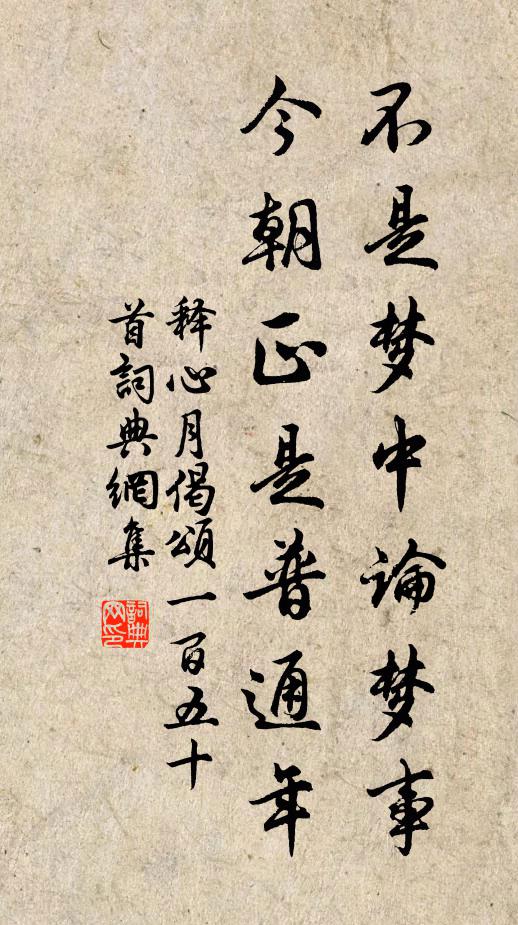 不是梦中論梦事
今朝正是普通年
释心月偈頌一百五十
首詞典網集
詞典
网印